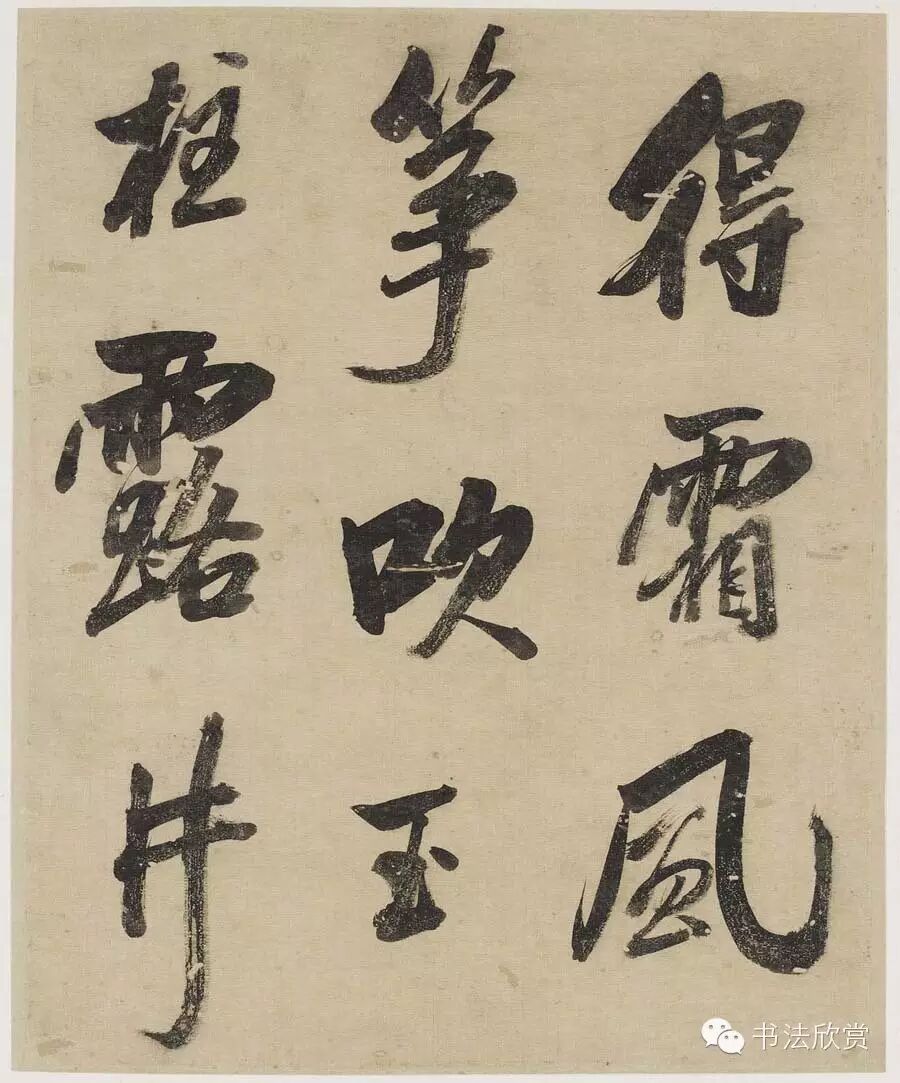 得霜風
筝吹玉
柱露井
书法欣赏